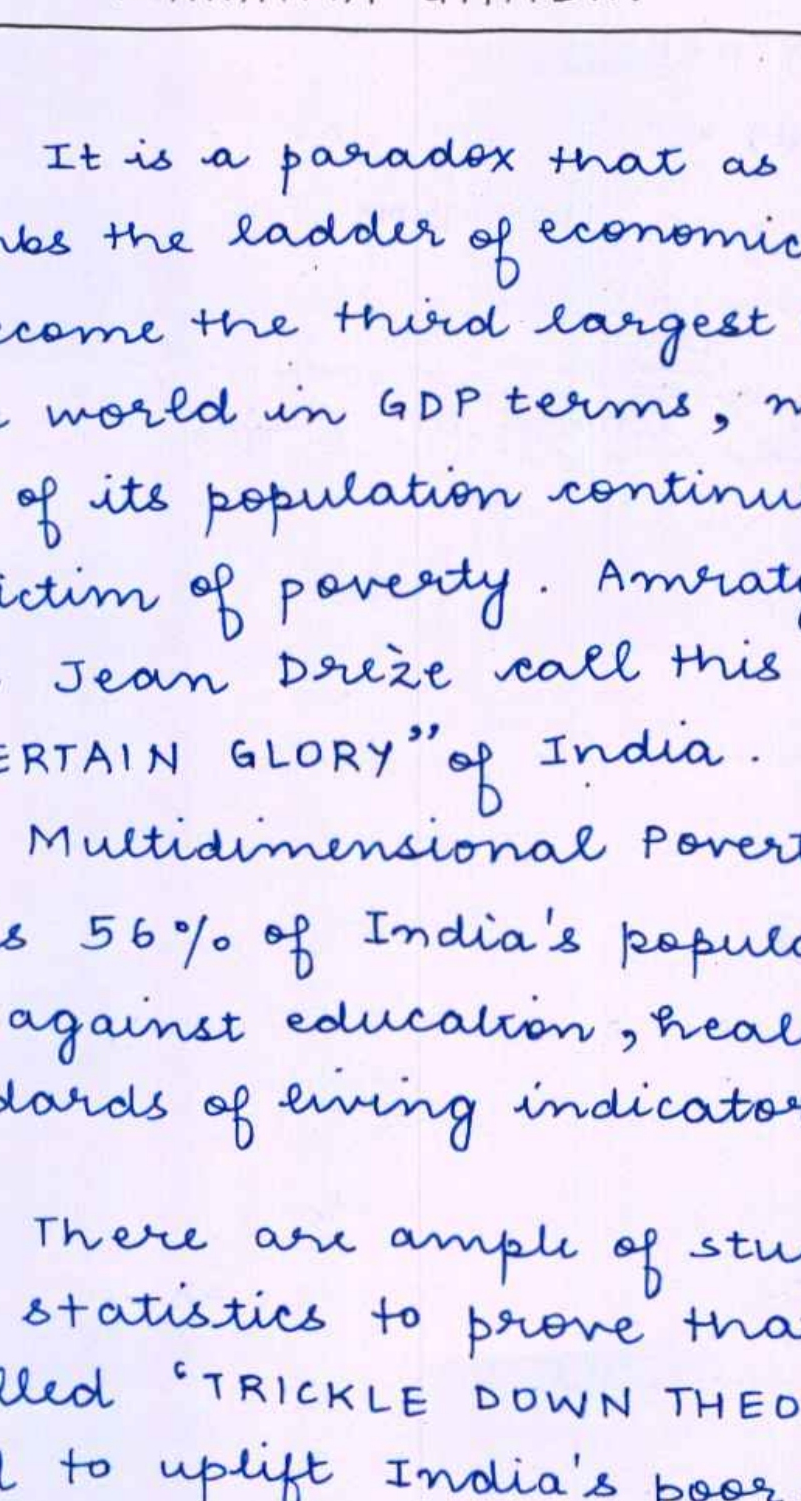 It is a paradox that as
mbs the ladder of economic
ecome the third largest
world in GDP terms,
of its population continu
ictim of poverty. Amraty
Jean Drèze call this
ERTAIN GLORY" of India.
Multidimensional Povert
s 56% of India's popula
against education, heal
dards of living indicator
There are ample of stu
statistics to prove tha
lled 'TRICKLE DOWN THEO
to uplift India's poor